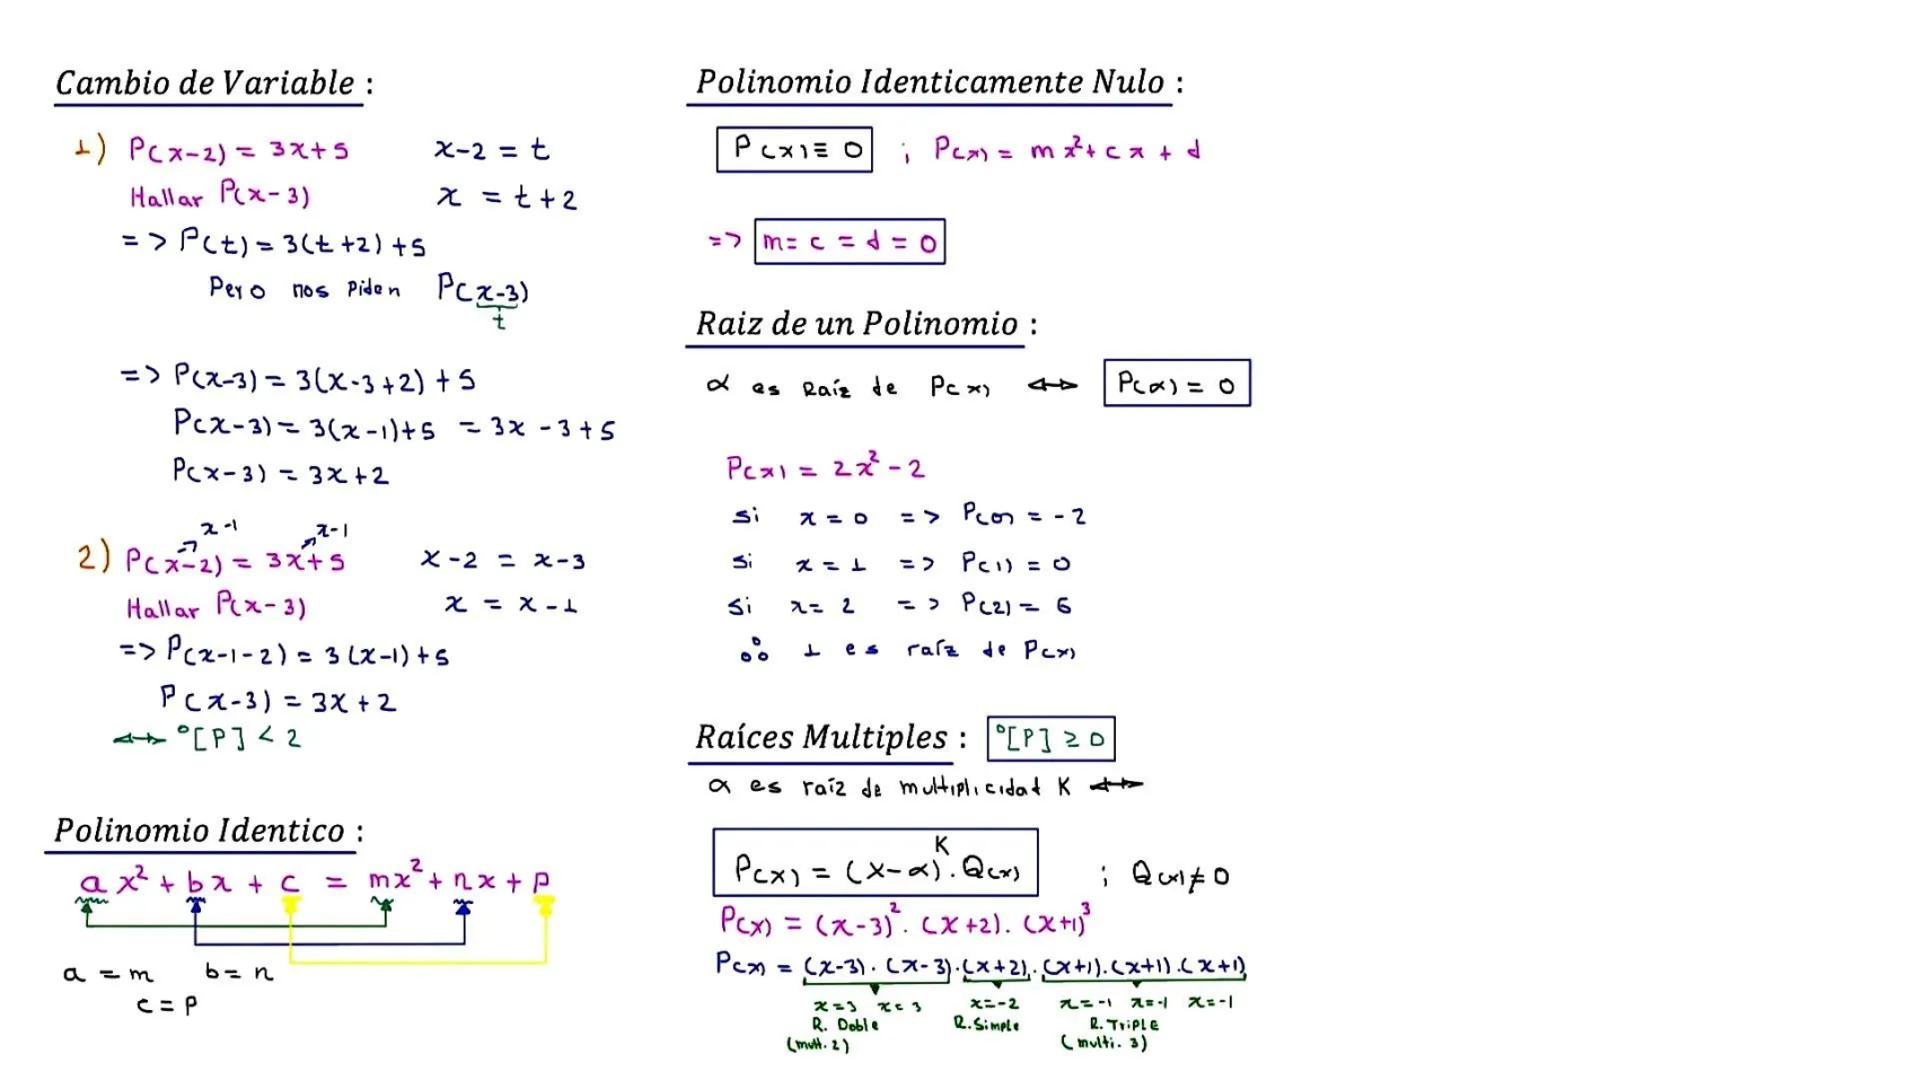 Cambio de Variable :
1) P(x-2) = 3x+5    x-2 = t
Hallar P(x-3)    x = t+2
=> P(t) = 3(t+2)+5
Pero nos Piden P(x-3)
t
=> P(x-3) = 3(x-3+2)+5
P(x-3) = 3(x-1)+5 = 3x-3+5
P(x-3) = 3x+2
x-1    x-1
2) P(x-2) = 3x+5    x-2 = x-3
Hallar P(x-3)    x = x-1
=> P(x-1-2) = 3(x-1)+5
P(x-3) = 3x+2
↔ °[P] < 2
Polinomio Identico :
ax²+bx+c = mx²+nx+p
a = m    b = n
c = p
Polinomio Identicamente Nulo :
P(x) ≡ 0 ; P(x) = mx²+cx+d
=> m = c = d = 0
Raiz de un Polinomio :
α es Raíz de P(x) ↔ P(α) = 0
P(x) = 2x²-2
si x = 0 => P(0) = -2
si x = 1 => P(1) = 0
si x = 2 => P(2) = 6
∴ 1 es raíz de P(x)
Raíces Multiples : °[P] ≥ 0
α es raíz de multiplicidad K ↔
P(x) = (x-α)ᴷ.Q(x) ; Q(x) ≠ 0
P(x) = (x-3)².(x+2).(x+1)³
P(x) = (x-3).(x-3).(x+2).(x+1).(x+1).(x+1)
x=3 x=3    x=-2    x=-1 x=-1 x=-1
R. Doble    R. Simple    R. Triple
(mult. 2)    (multi. 3)